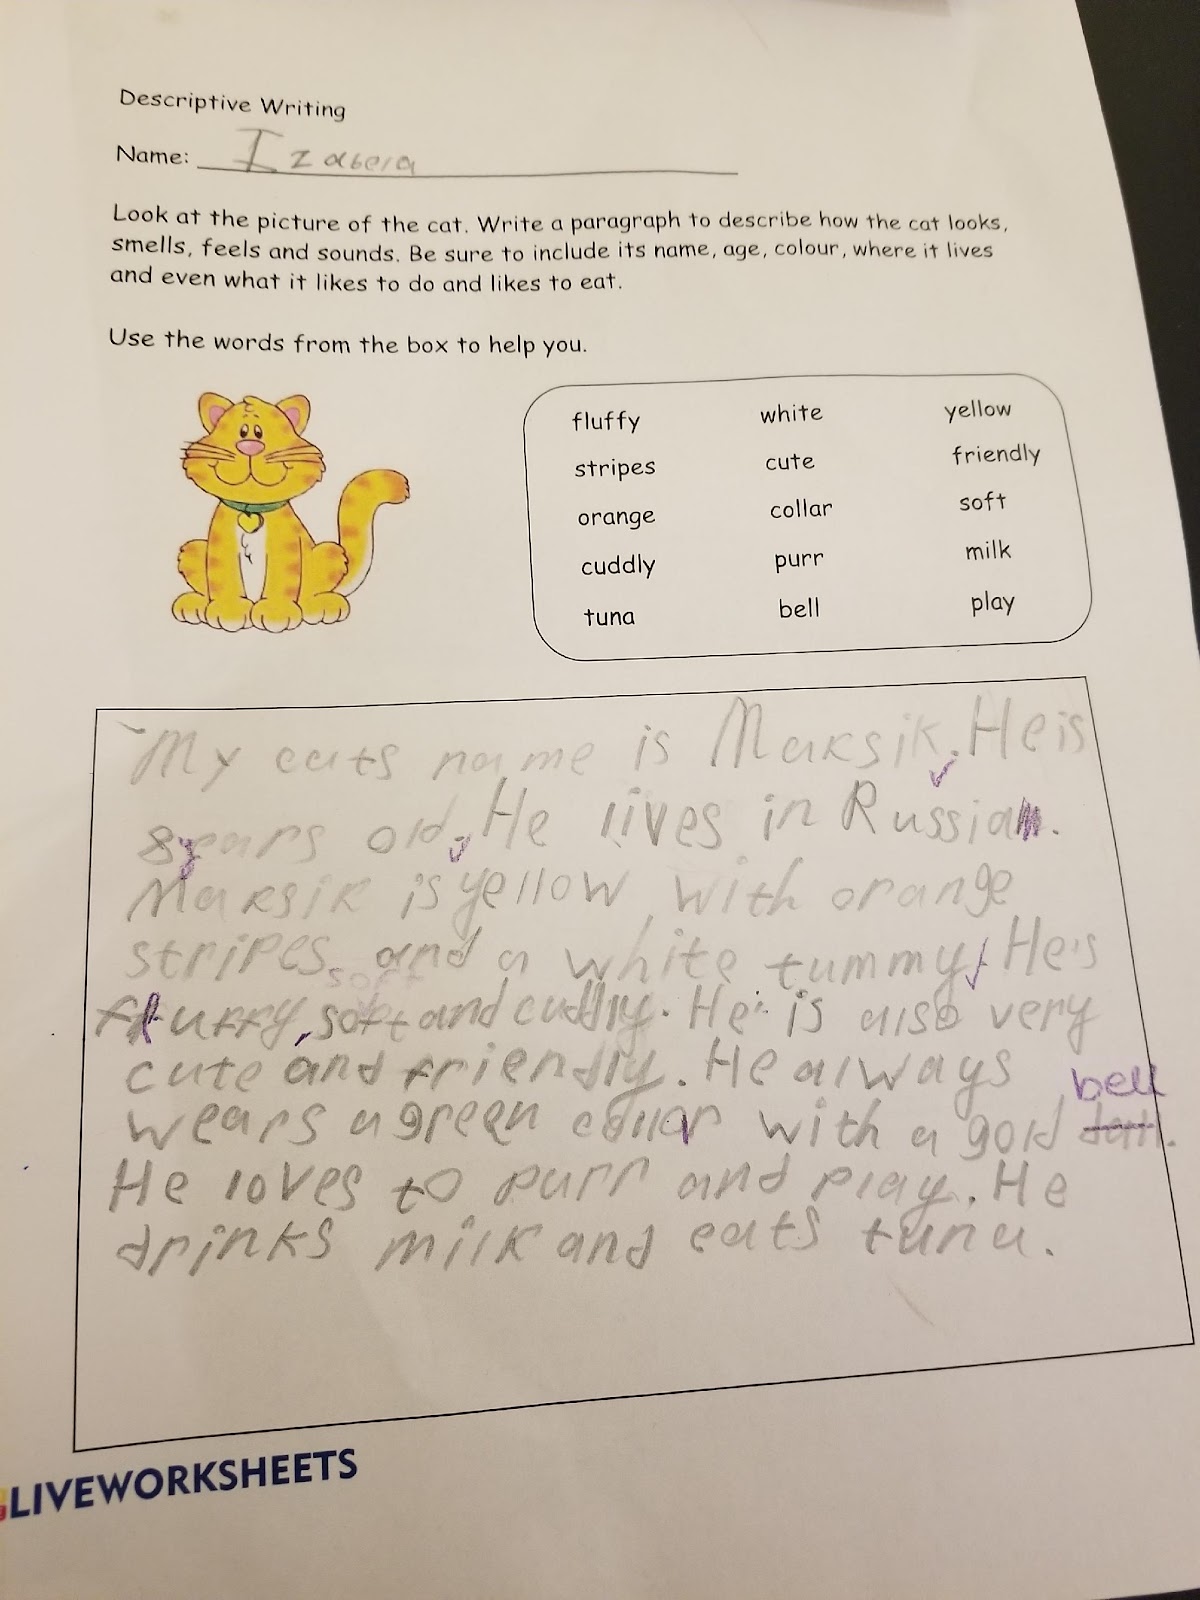 Descriptive Writing
Name: Izabela
Look at the picture of the cat. Write a paragraph to describe how the cat looks,
smells, feels and sounds. Be sure to include its name, age, colour, where it lives
and even what it likes to do and likes to eat.
Use the words from the box to help you.
fluffy white yellow
stripes cute friendly
orange collar soft
cuddly purr milk
tuna bell play
My cats name is Marsik. He is
8 years old. He lives in Russia.
Marsik is yellow with orange
stripes and a white tummy. He's
fluffy, soft and cuddly. He is also very
cute and friendly. He always
bell
wears a green collar with a gold
He loves to purr and play. He
drinks milk and eats tuna.
LIVEWORKSHEETS